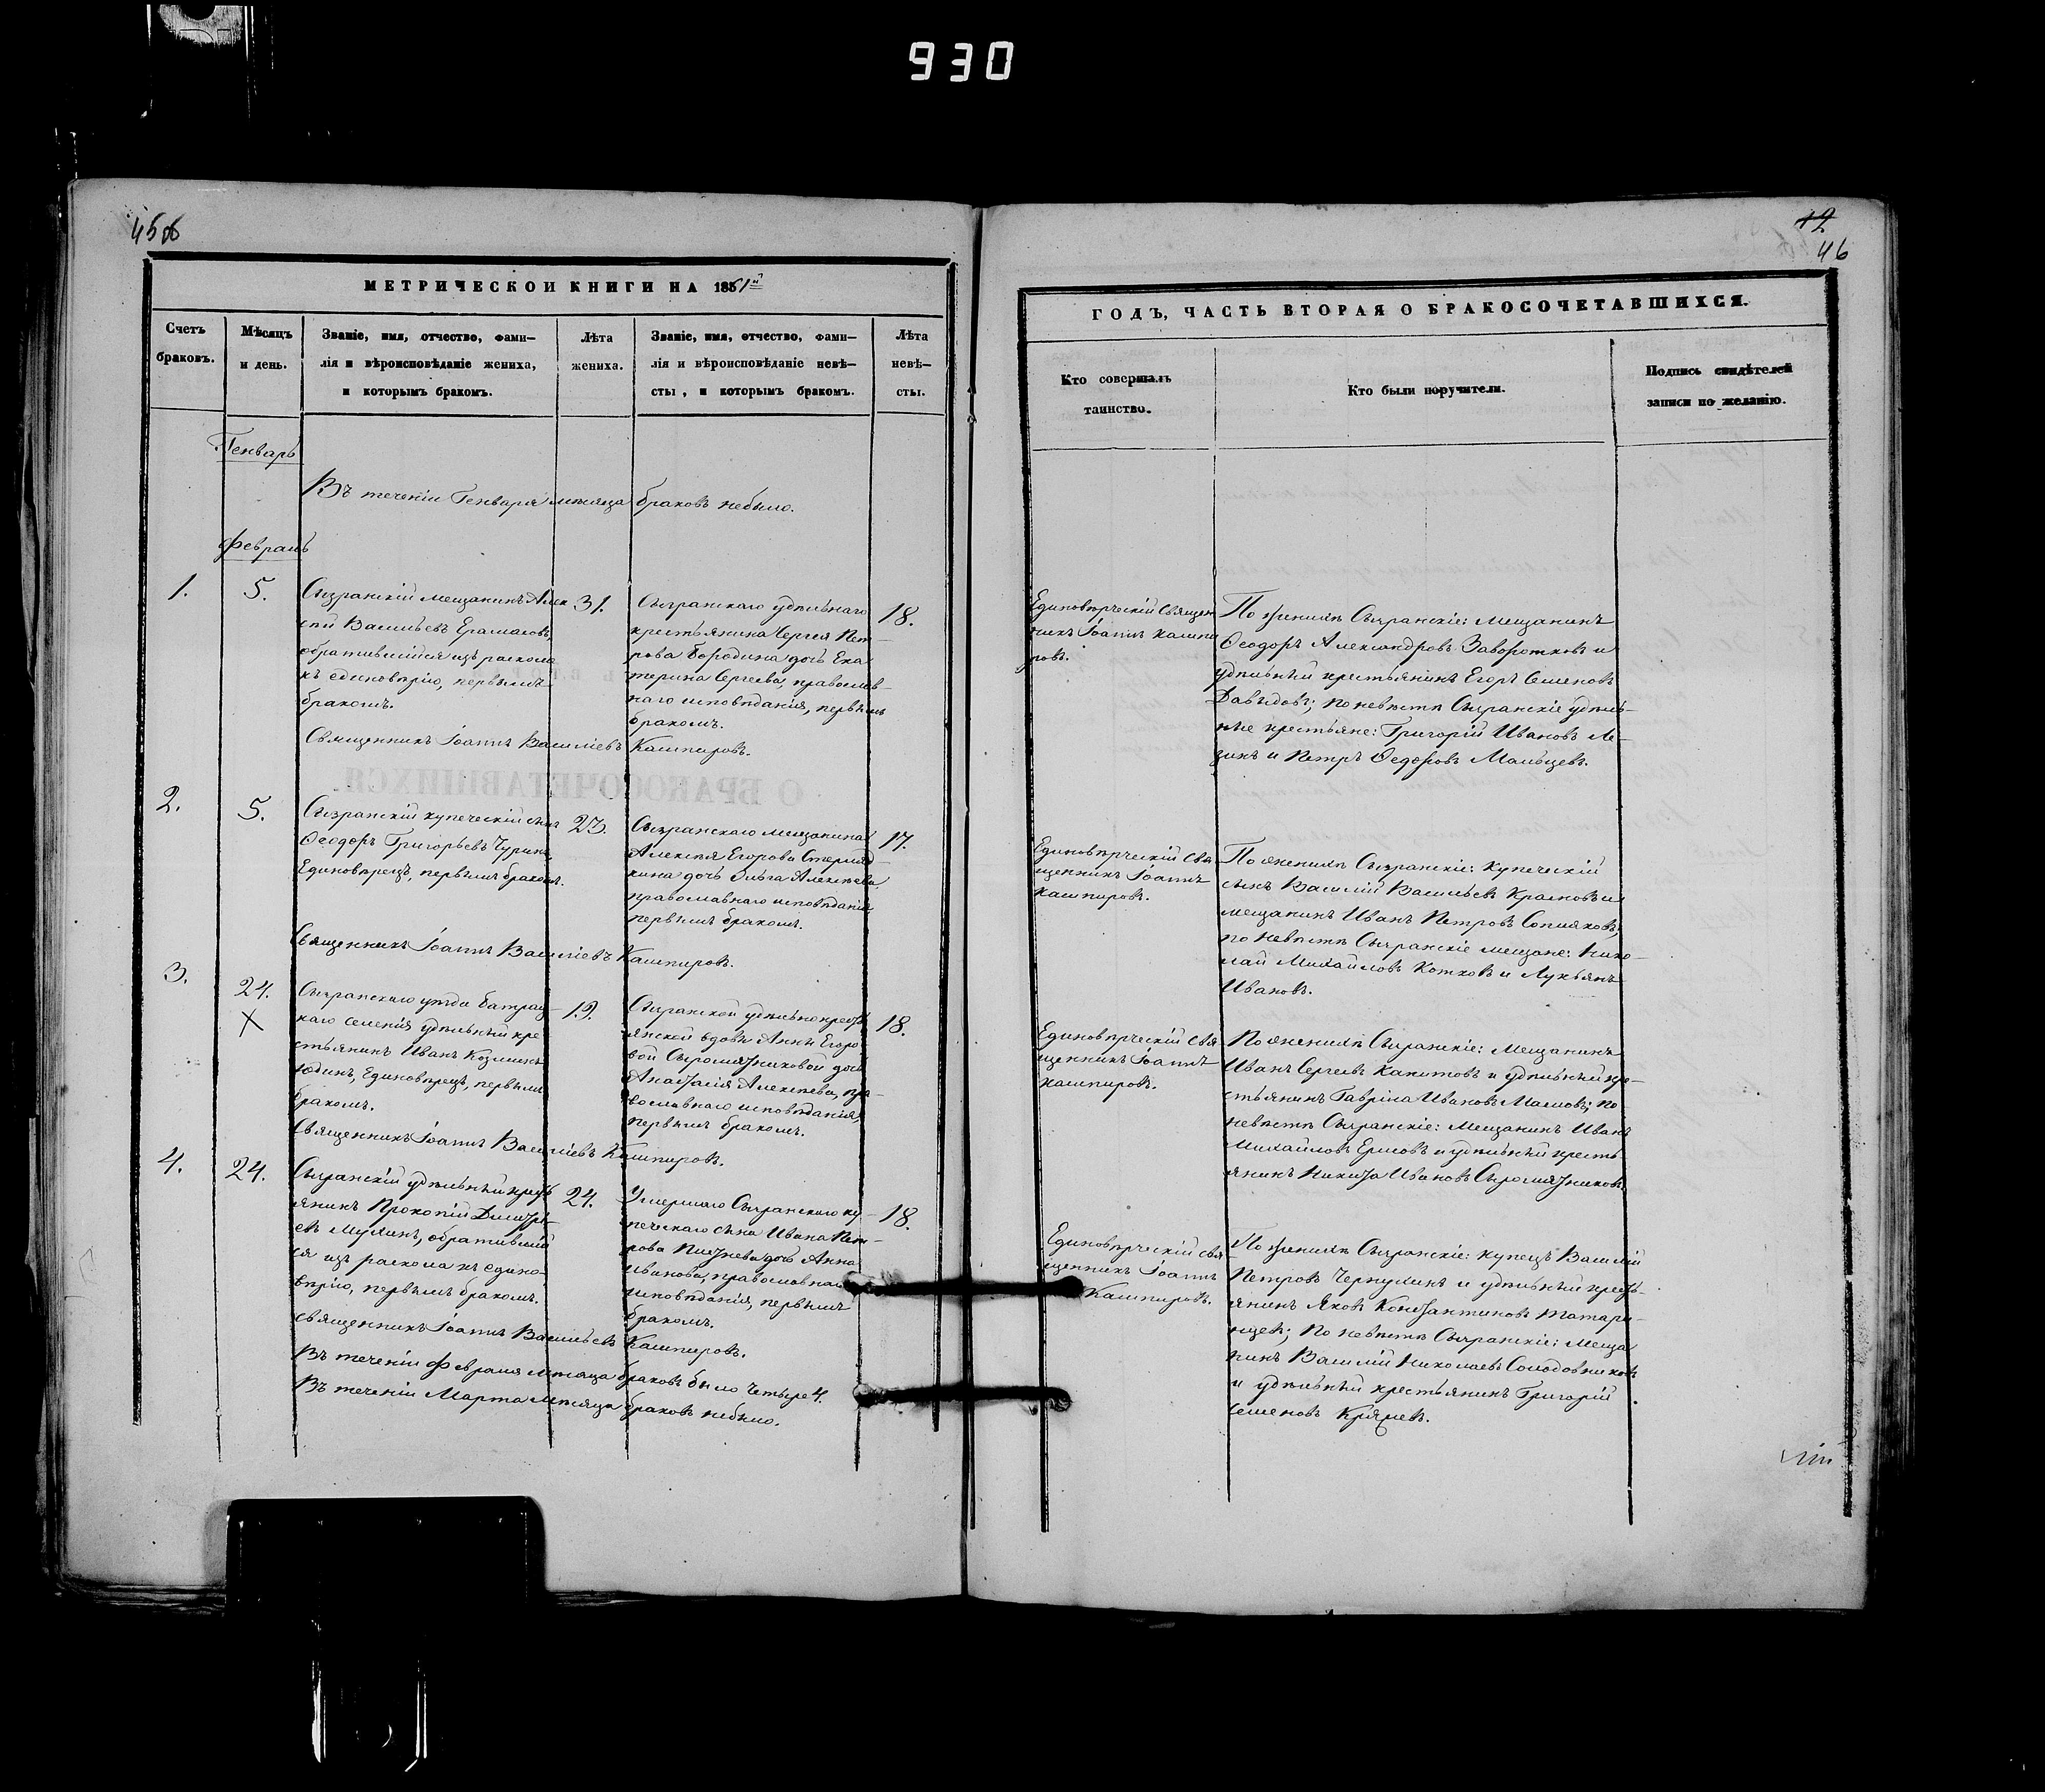 930
45
12
46
МЕТРИЧЕСКОЙ КНИГИ НА 1851й
Счетъ
браковъ.
Мѣсяцъ
и день.
Званіе, имя, отчество, фами-
лія и вѣроисповѣданіе жениха,
и которымъ бракомъ.
Лѣта
жениха.
Званіе, имя, отчество, фами-
лія и вѣроисповѣданіе невѣ-
сты, и которымъ бракомъ.
Лѣта
невѣ-
сты.
Генварь
Въ теченіи Генваря мѣсяца браковъ небыло.
Февраль
1.
5.
Сызранскій мещанинъ Алек
сѣй Васильевъ Ермаковъ,
обратившійся изъ раскола
къ единовѣрію, первымъ
бракомъ.
31.
Сызранскаго удѣльнаго
крестьянина Сергея Пет-
рова Бородина дочь Ека
терина Сергеева, православ-
наго исповѣданія, первымъ
бракомъ.
18.
Священникъ Іоаннъ Василіевъ Кашпировъ.
2.
5.
Сызранскій купеческій сынъ
Ѳеодоръ Григорьевъ Чуринъ,
Единовѣрецъ, первымъ бракомъ.
23.
Сызранскаго мещанина
Алексѣя Егорова
кина дочь Ольга Алексѣева,
православнаго исповѣданія,
первымъ бракомъ.
17.
Священникъ Іоаннъ Василіевъ Кашпировъ.
3.
24.
Х
Сызранскаго уѣзда Батрац
каго селенія удѣльный кре
стьянинъ Иванъ Козминъ
Юдинъ, Единовѣрецъ, первымъ
бракомъ.
19.
Сызранской удѣльнокресть
янской вдовы Анны Егоро
вой Сыромятниковой дочь
Анастасія Алексѣева, пра-
вославнаго исповѣданія,
первымъ бракомъ.
18.
Священникъ Іоаннъ Василіевъ Кашпировъ.
4.
24.
Сызранскій удѣльный кресть
янинъ Прокопій Дмитрі-
евъ Мухинъ, обратившій
ся изъ раскола къ едино-
вѣрію, первымъ бракомъ.
24.
Умершаго Сызранскаго ку-
печескаго сына Ивана Пет-
рова дочь Анна
Иванова, православнаго
исповѣданія, первымъ
бракомъ.
18.
священникъ Іоаннъ Васильевъ Кашпировъ.
Въ теченіи Февраля мѣсяца браковъ было четыре 4.
Въ теченіи Марта мѣсяца браковъ небыло.
ГОДЪ, ЧАСТЬ ВТОРАЯ О БРАКОСОЧЕТАВШИХСЯ.
Кто совершалъ
таинство.
Кто были поручители.
Подпись свидѣтелей
записи по желанію.
Единовѣрческій Священ
никъ Іоаннъ Кашпи
ровъ.
По женихѣ Сызранскіе: Мещанинъ
Ѳеодоръ Александровъ Заворотковъ и
удѣльный крестьянинъ Егоръ Семеновъ
Давыдовъ; по невѣстѣ Сызранскіе удѣль-
ные крестьяне: Григорій Ивановъ Ле-
зинъ и Петръ Ѳедоровъ Мальцевъ.
Единовѣрческій Свя
щенникъ Іоаннъ
Кашпировъ.
По женихѣ Сызранскіе: купеческій
сынъ Василій Васильевъ Красновъ и
мещанинъ Иванъ Петровъ Сопляковъ;
по невѣстѣ Сызранскіе мещане: Нико-
лай Михайловъ Котковъ и Лукьянъ
Ивановъ.
Единовѣрческій Свя
щенникъ Іоаннъ
Кашпировъ.
По женихѣ Сызранскіе: Мещанинъ
Иванъ Сергеевъ Капитовъ и удѣльный кре-
стьянинъ Гаврила Ивановъ Масловъ; по
невѣстѣ Сызранскіе: Мещанинъ Иванъ
Михайловъ Ерисовъ и удѣльный кресть
янинъ Никита Ивановъ Сыромятниковъ.
Единовѣрческій свя
щенникъ Іоаннъ
Кашпировъ.
По женихѣ Сызранскіе: купецъ Василій
Петровъ Чернухинъ и удѣльный кресть-
янинъ Яковъ Константиновъ Татари-
нцевъ; по невѣстѣ Сызранскіе: Меща
нинъ Василій Николаевъ Солодовниковъ
и удѣльный крестьянинъ Григорій
Семеновъ Кряжевъ.